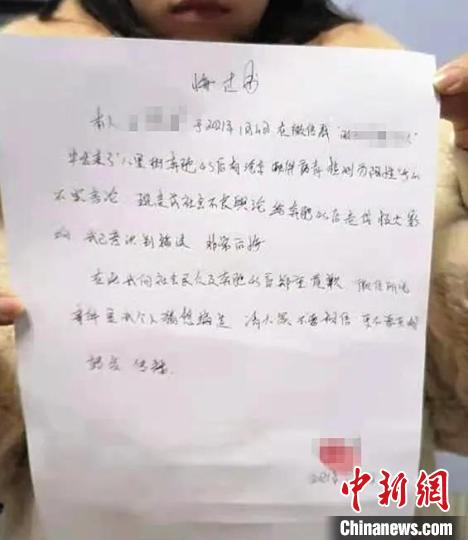 悔过书
本人 于2021年1月4日在微信群
中发表了"八里街奔驰4S店有汽车 新冠病毒检测为阳性"等的
不实言论 现造成社会不良舆论 给奔驰4S店造成极大影
响 我已意识到错误 非常后悔
在此我向社会民众及奔驰4S店郑重道歉 微信所说
事件是我个人猜想编造 请大家不要相信 更不要去
转发 传播.
2021年
中新网
Chinanews.com